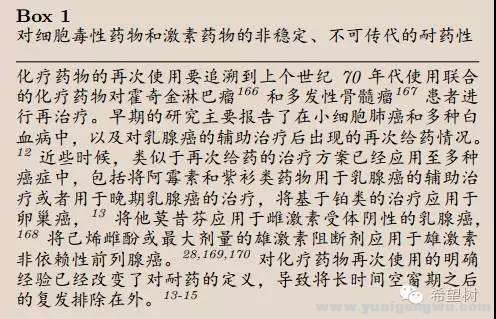 Box 1
对细胞毒性药物和激素药物的非稳定、不可传代的耐药性
化疗药物的再次使用要追溯到上个世纪 70 年代使用联合
的化疗药物对霍奇金淋巴瘤166 和多发性骨髓瘤167 患者进
行再治疗。早期的研究主要报告了在小细胞肺癌和多种白
血病中，以及对乳腺癌的辅助治疗后出现的再次给药情况。
12 近些时候，类似于再次给药的治疗方案已经应用至多种
癌症中，包括将阿霉素和紫衫类药物用于乳腺癌的辅助治
疗或者用于晚期乳腺癌的治疗，将基于铂类的治疗应用于
卵巢癌，13 将他莫昔芬应用于雌激素受体阴性的乳腺癌，
168 将己烯雌酚或最大剂量的雄激素阻断剂应用于雄激素
非依赖性前列腺癌。28,169,170 对化疗药物再次使用的明确
经验已经改变了对耐药的定义，导致将长时间空窗期之后
的复发排除在外。13-15
希望树